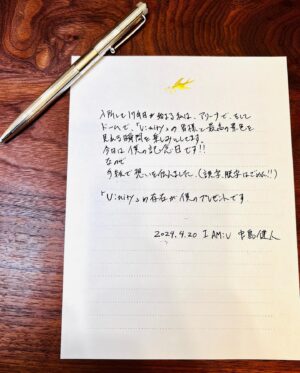 入所して17年目が始まる私は、アリーナで、そして
ドームで、「U:nity」の皆様と最高の景色を
見れる瞬間を楽しみにしてます。
今日は僕の記念日です!!
なので
手紙で想いを伝えました。(誤字、脱字はごめん!!)
「U:nity」の存在が僕のプレゼントです
2024.4.20 I AM:U 中島健人